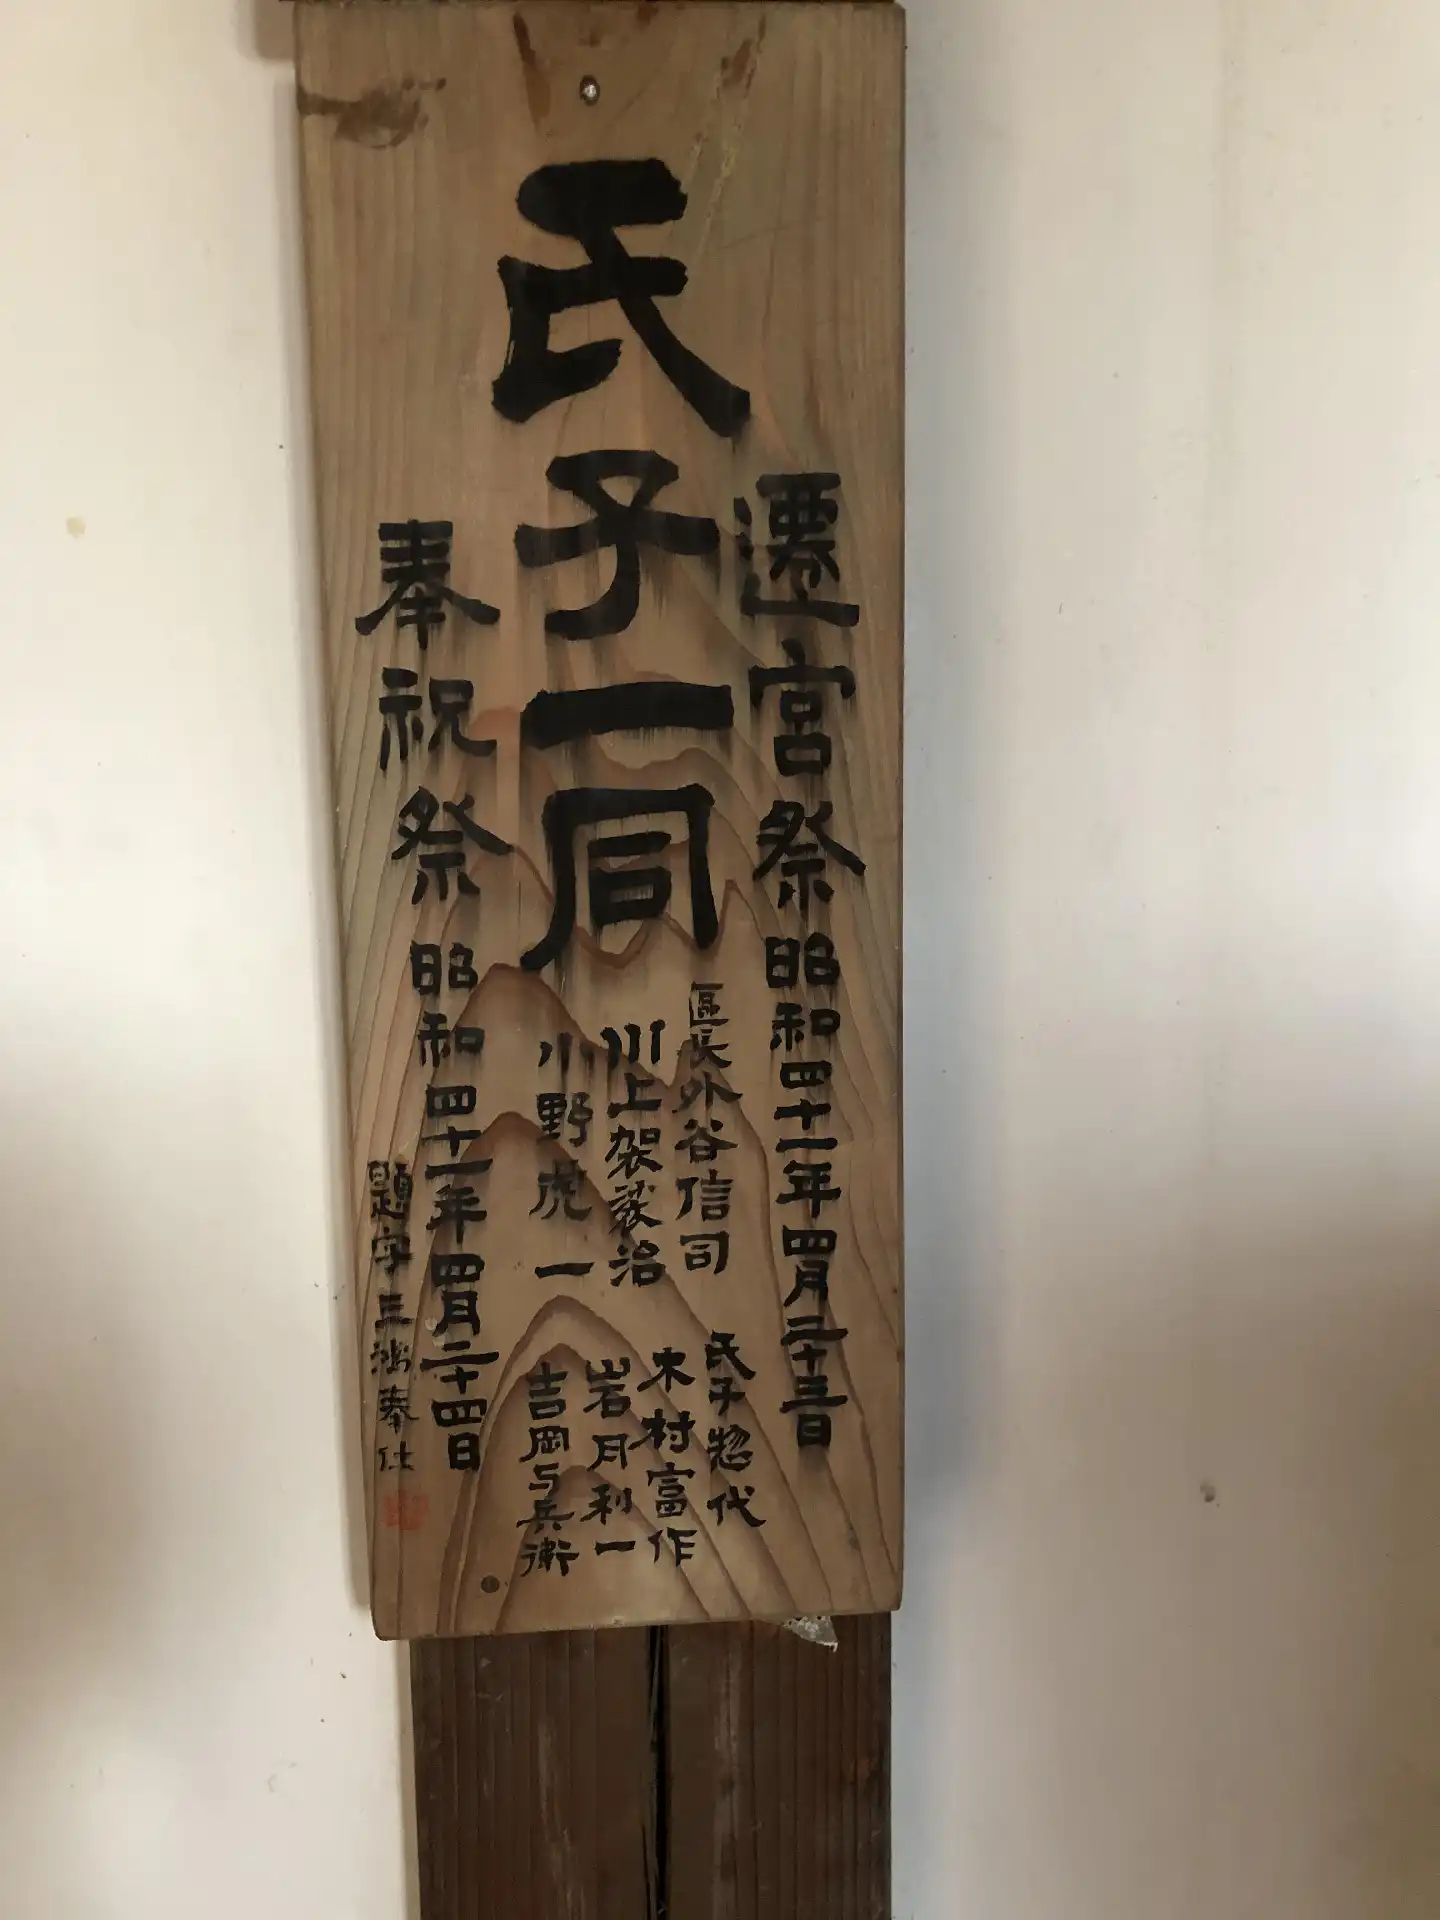 遷宮祭昭和四十一年四月二十三日
氏子一同
區長外谷信司
川上袈裟治
小野虎一
氏子惣代
木村富作
岩月利一
吉岡与兵衛
奉祝祭昭和四十一年四月二十四日
題字三 奉仕